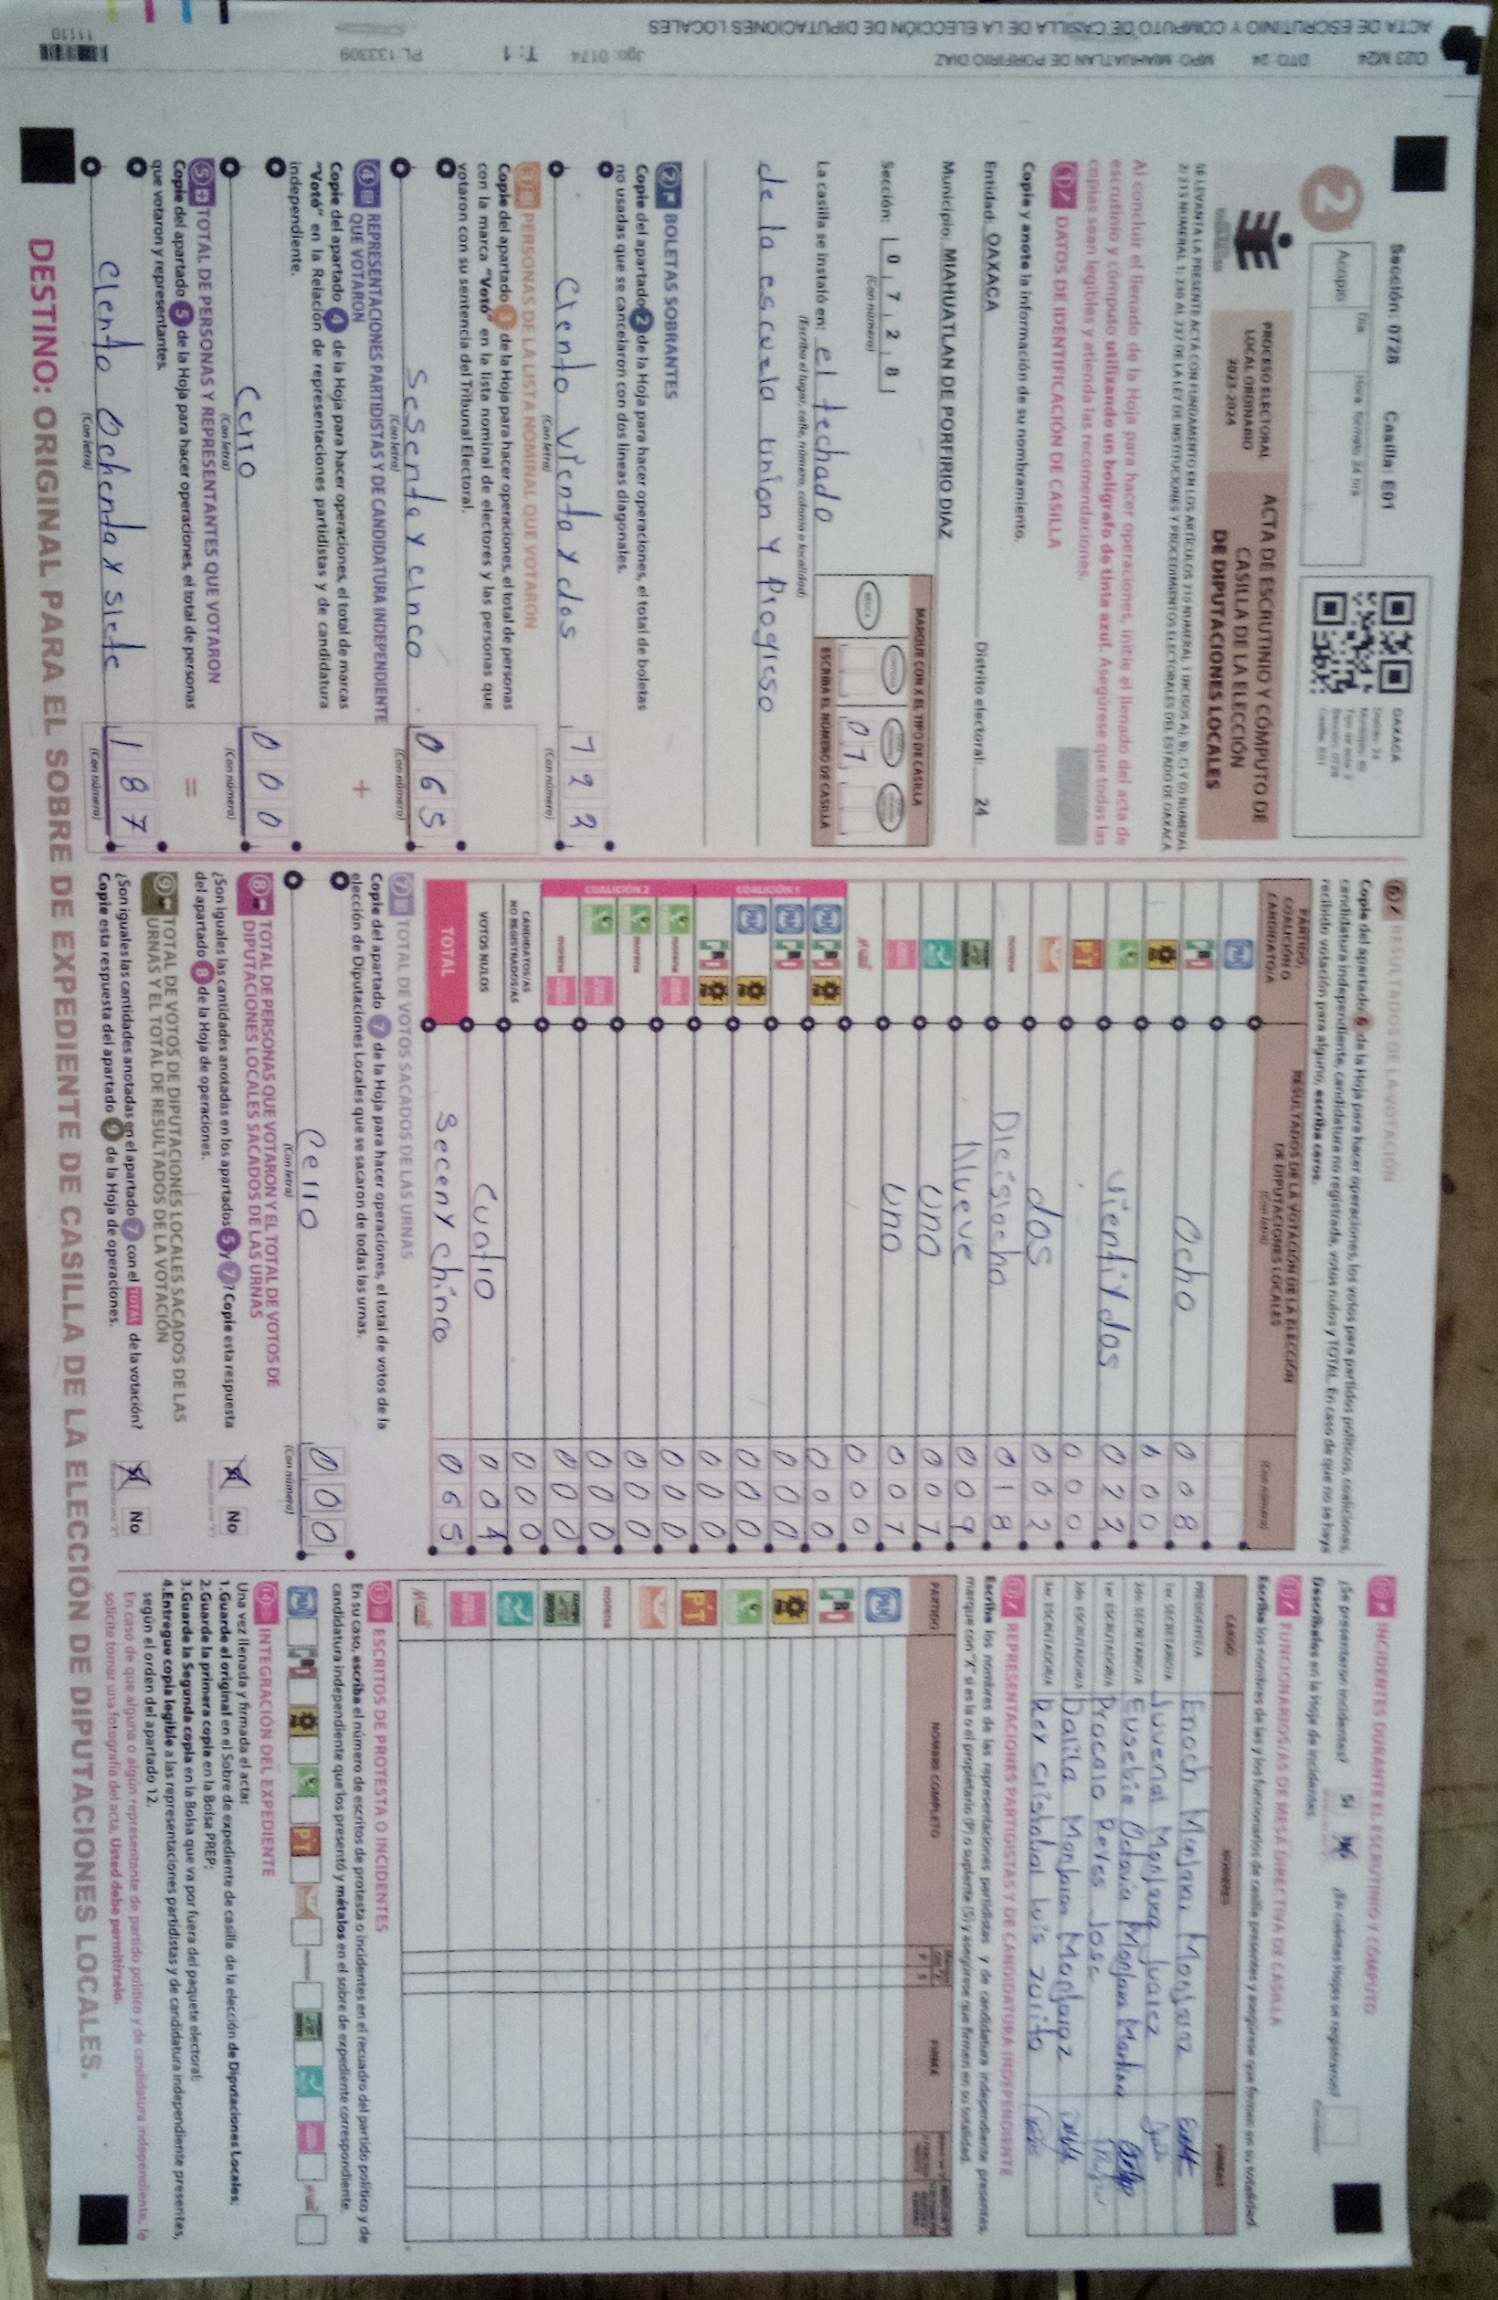 Sección: 0728 Casilla: E01
2
Acopio
Día
Hora formato 24 hrs
OAXACA
PROCESO ELECTORAL
LOCAL ORDINARIO
2023-2024
ACTA DE ESCRUTINIO Y CÓMPUTO DE
CASILLA DE LA ELECCIÓN
DE DIPUTACIONES LOCALES
Al concluir el llenado de la Hoja para hacer operaciones, inicie el llenado del acta de
escrutinio y cómputo utilizando un bolígrafo de tinta azul. Asegúrese que todas las
copias sean legibles y atienda las recomendaciones.
1 DATOS DE IDENTIFICACIÓN DE CASILLA
Copie y anote la información de su nombramiento.
Entidad: OAXACA Distrito electoral: 24
Municipio: MIAHUATLAN DE PORFIRIO DIAZ
Sección: 0 7 2 8
(Con número)
MARQUE CON X EL TIPO DE CASILLA
01
ESCRIBA EL NÚMERO DE CASILLA
La casilla se instaló en: el techado
(Escriba el lugar, calle, número, colonia o localidad)
de la escuela union y Progreso
2 BOLETAS SOBRANTES
Copie del apartado 2 de la Hoja para hacer operaciones, el total de boletas
no usadas que se cancelaron con dos líneas diagonales.
Ciento vientay dos 122
(Con letra) (Con número)
3 PERSONAS DE LA LISTA NOMINAL QUE VOTARON
Copie del apartado 3 de la Hoja para hacer operaciones, el total de personas
con la marca "Votó" en la lista nominal de electores y las personas que
votaron con su sentencia del Tribunal Electoral.
Sesenta y cinco 065
(Con letra) (Con número)
4 REPRESENTACIONES PARTIDISTAS Y DE CANDIDATURA INDEPENDIENTE
QUE VOTARON
+
Copie del apartado 4 de la Hoja para hacer operaciones, el total de marcas
"Votó" en la Relación de representaciones partidistas y de candidatura
independiente.
Cerro 000
(Con letra) (Con número)
5 TOTAL DE PERSONAS Y REPRESENTANTES QUE VOTARON
=
Copie del apartado 5 de la Hoja para hacer operaciones, el total de personas
que votaron y representantes.
Ciento Ochenta y siete 187
(Con letra) (Con número)
6 RESULTADOS DE LA VOTACIÓN
Copie del apartado 6 de la Hoja para hacer operaciones, los votos para partidos políticos, coaliciones,
candidatura independiente, candidatura no registrada, votos nulos y TOTAL. En caso de que no se haya
recibido votación para alguno, escriba ceros.
PARTIDO,
COALICIÓN O
CANDIDATO/A
RESULTADOS DE LA VOTACIÓN DE LA ELECCIÓN
DE DIPUTACIONES LOCALES
(Con letra)
(Con número)
PRI Ocho 008
000
Vientiydos 022
PT 000
dos 002
morena Dieisiocho 018
Nueve 009
Uno 001
Uno 001
000
000
000
000
000
morena 000
morena 000
000
morena 000
CANDIDATOS/AS
NO REGISTRADOS/AS 000
VOTOS NULOS Cuatro 004
TOTAL Seceny chinco 065
7 TOTAL DE VOTOS SACADOS DE LAS URNAS
Copie del apartado 7 de la Hoja para hacer operaciones, el total de votos de la
elección de Diputaciones Locales que se sacaron de todas las urnas.
Cerro 000
(Con letra) (Con número)
8 TOTAL DE PERSONAS QUE VOTARON Y EL TOTAL DE VOTOS DE
DIPUTACIONES LOCALES SACADOS DE LAS URNAS
¿Son iguales las cantidades anotadas en los apartados 5 y 7? Copie esta respuesta
del apartado 8 de la Hoja de operaciones.
No
9 TOTAL DE VOTOS DE DIPUTACIONES LOCALES SACADOS DE LAS
URNAS Y EL TOTAL DE RESULTADOS DE LA VOTACIÓN
¿Son iguales las cantidades anotadas en el apartado 7 con el TOTAL de la votación?
Copie esta respuesta del apartado 9 de la Hoja de operaciones.
No
10 INCIDENTES DURANTE EL ESCRUTINIO Y CÓMPUTO
¿Se presentaron incidentes? Sí No ¿En cuántas Hojas se registraron?
Descríbalos en la Hoja de incidentes.
11 FUNCIONARIOS/AS DE MESA DIRECTIVA DE CASILLA
Escriba los nombres de las y los funcionarios de casilla presentes y asegúrese que firmen en su totalidad.
CARGO NOMBRES FIRMAS
PRESIDENTE/A Enoch Monjaraz Monjaraz
1er. SECRETARIO/A Juvenal Monjaraz Juarez
2do. SECRETARIO/A Eusebia Octavia Monjaraz
1er. ESCRUTADOR/A Procalo Reyes Jose
2do. ESCRUTADOR/A Dalila Monjaraz Monjaraz
3er. ESCRUTADOR/A Rey cristobal luis zurita
12 REPRESENTACIONES PARTIDISTAS Y DE CANDIDATURA INDEPENDIENTE
Escriba los nombres de las representaciones partidistas y de candidatura independiente presentes,
marque con "X" si es la o el propietario (P) o suplente (S) y asegúrese que firmen en su totalidad.
PARTIDO NOMBRE COMPLETO FIRMA
PRI
PT
morena
13 ESCRITOS DE PROTESTA O INCIDENTES
En su caso, escriba el número de escritos de protesta o incidentes en el recuadro del partido político y de
candidatura independiente que los presentó y métalos en el sobre de expediente correspondiente.
14 INTEGRACIÓN DEL EXPEDIENTE
Una vez llenada y firmada el acta:
1.Guarde el original en el Sobre de expediente de casilla de la elección de Diputaciones Locales;
2.Guarde la primera copia en la Bolsa PREP;
3.Guarde la Segunda copia en la Bolsa que va por fuera del paquete electoral;
4.Entregue copia legible a las representaciones partidistas y de candidatura independiente presentes,
según el orden del apartado 12.
En caso de que alguna o algún representante de partido político y de candidatura independiente, le
solicite tomar una fotografía del acta, Usted debe permitírselo.
DESTINO: ORIGINAL PARA EL SOBRE DE EXPEDIENTE DE CASILLA DE LA ELECCIÓN DE DIPUTACIONES LOCALES.
023 M24 DTO: 24 MPO: MIAHUATLAN DE PORFIRIO DIAZ Jgo: 0174 T: 1 PL: 133309
ACTA DE ESCRUTINIO Y COMPUTO DE CASILLA DE LA ELECCIÓN DE DIPUTACIONES LOCALES
11110